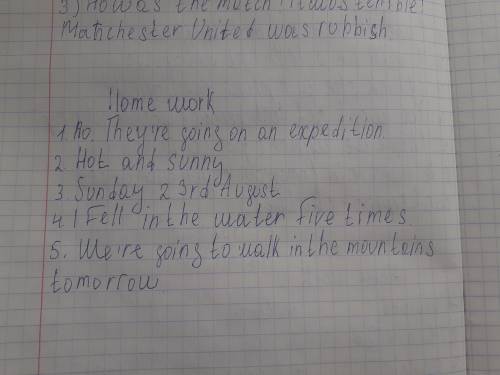 3) How was the match? It was terrible!
Manchester United was rubbish.
Home work
1. No. They're going on an expedition
2. Hot and sunny
3. Sunday 23rd August
4. I Fell in the water five times
5. We're going to walk in the mountains
tomorrow